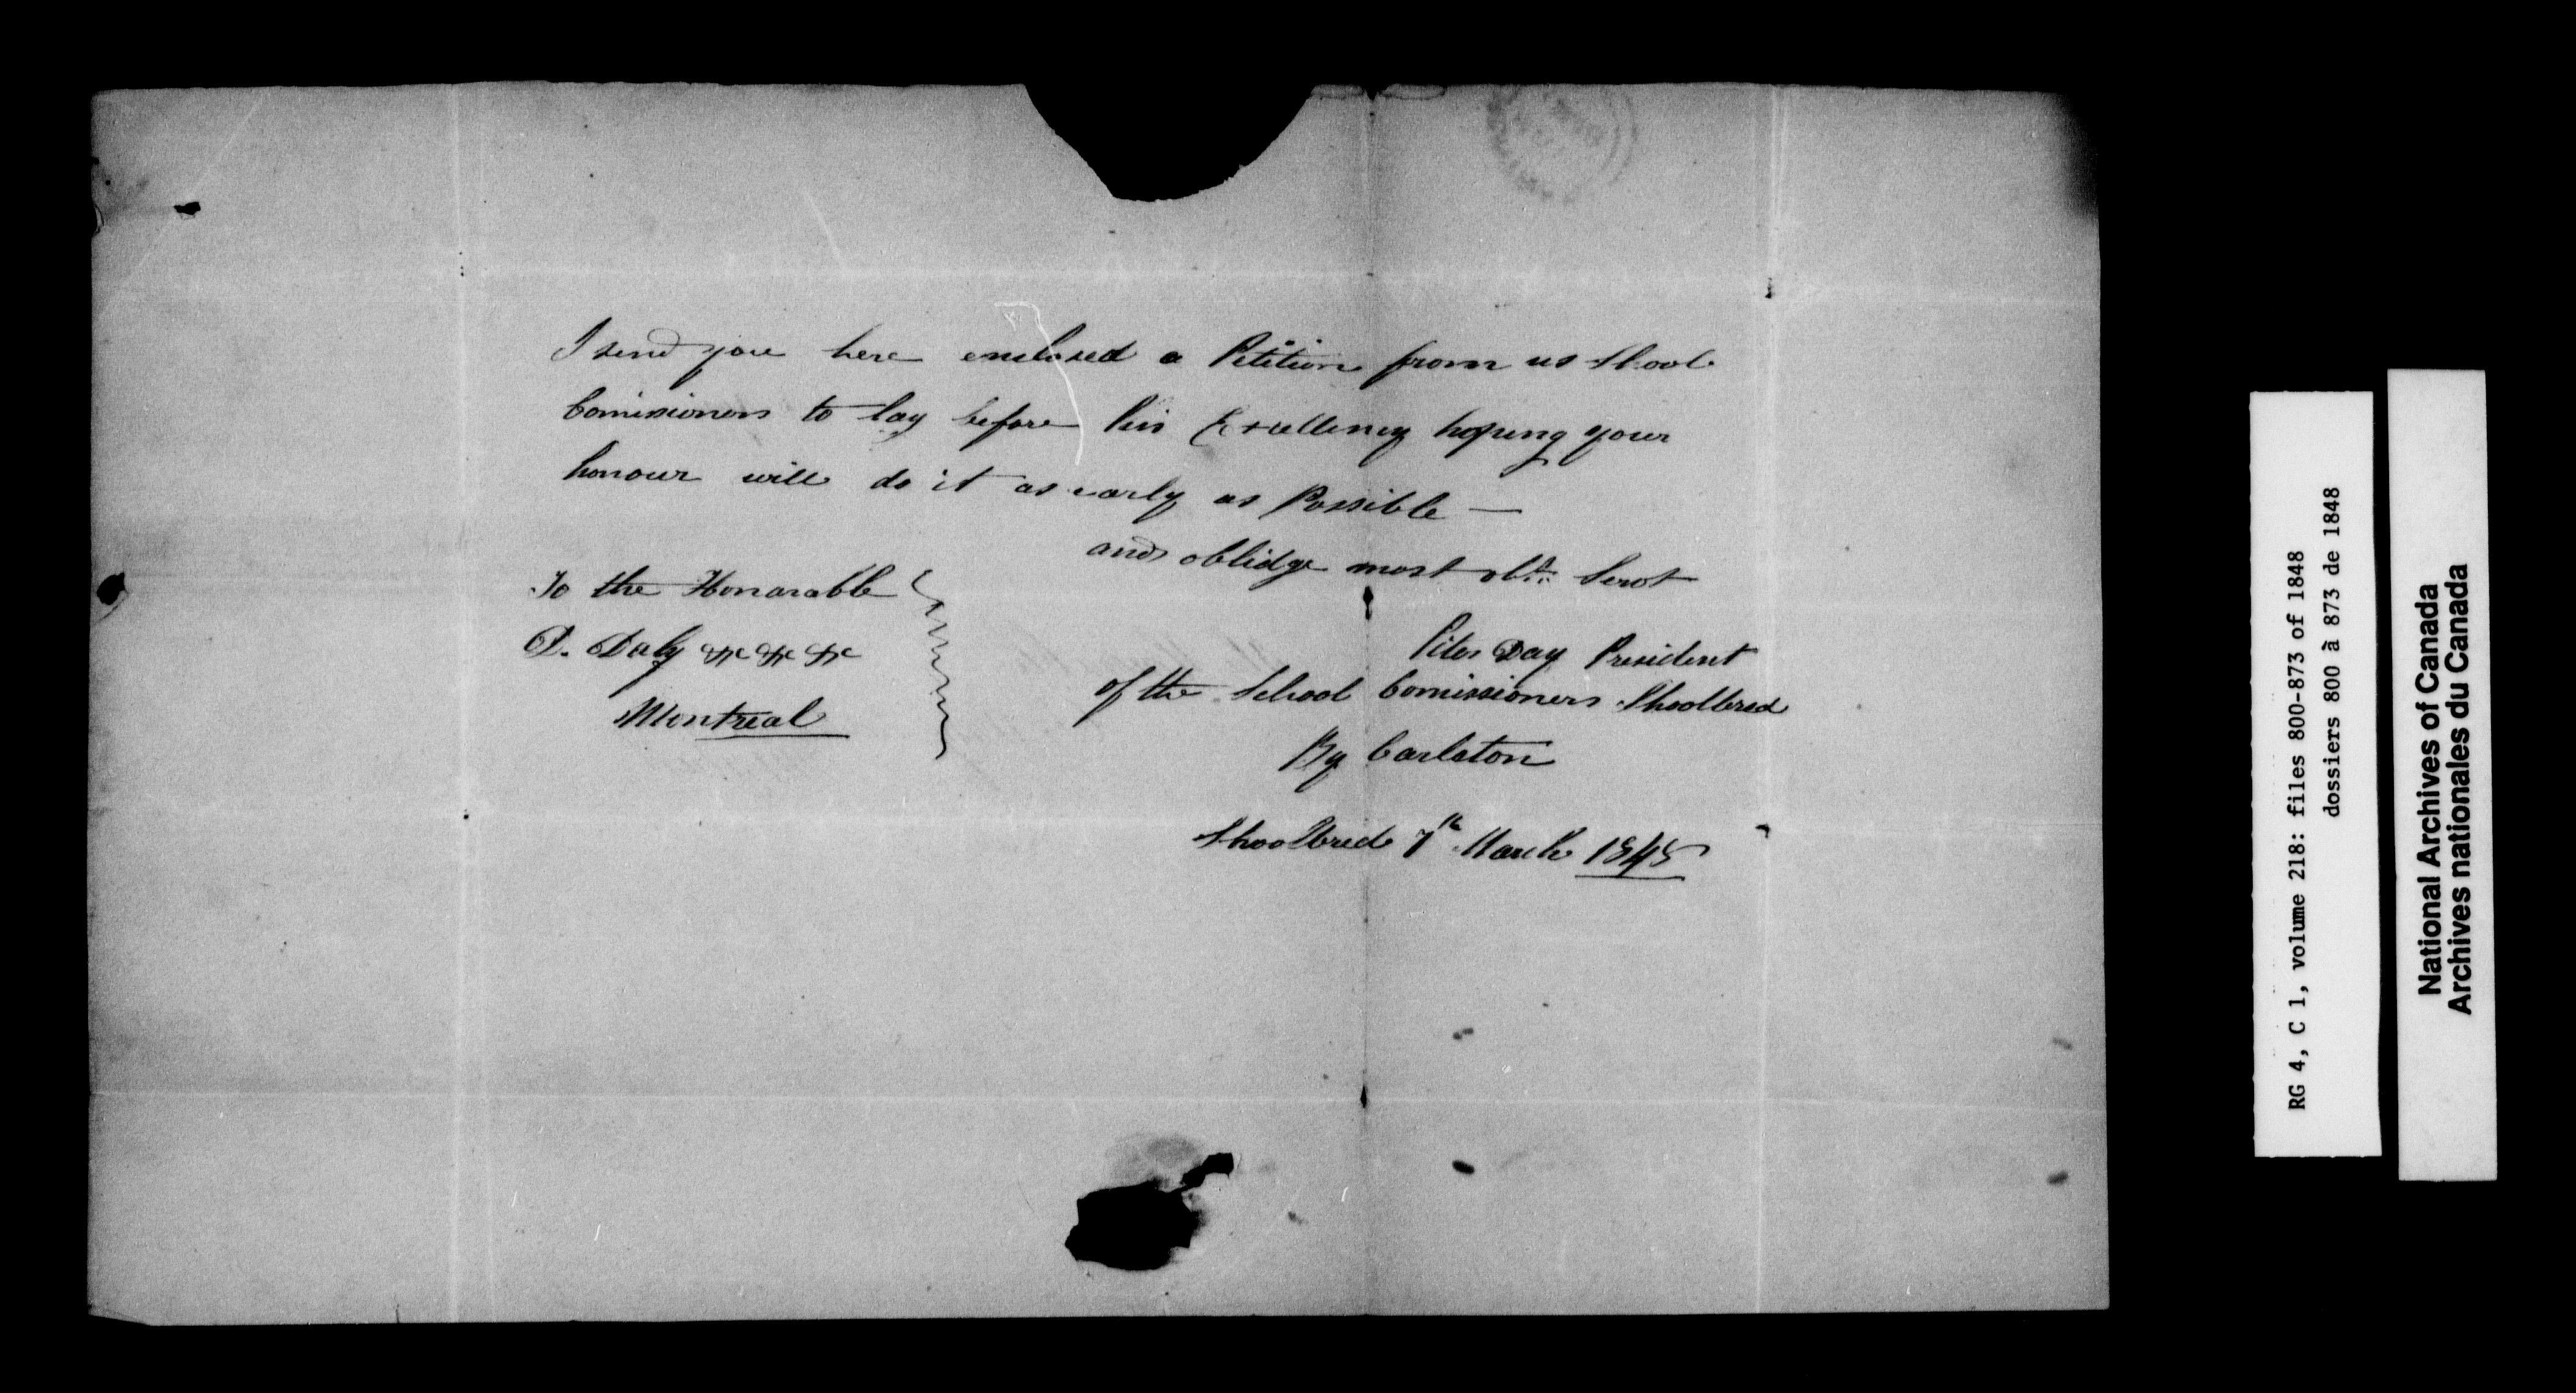 I send you here enclosed a Petition from us Shool
Comissioners to lay before his Excellency hoping your
honour will do it as early as Possible —
and oblidge most obt. Servt
To the Honarable
D. Daly &c &c &c
Montreal
Piter Day President
of the School Comissioners Shoolbred
By Carleton
Shoolbred 7th March 1848
RG 4, C 1, volume 218: files 800-873 of 1848
dossiers 800 à 873 de 1848
National Archives of Canada
Archives nationales du Canada